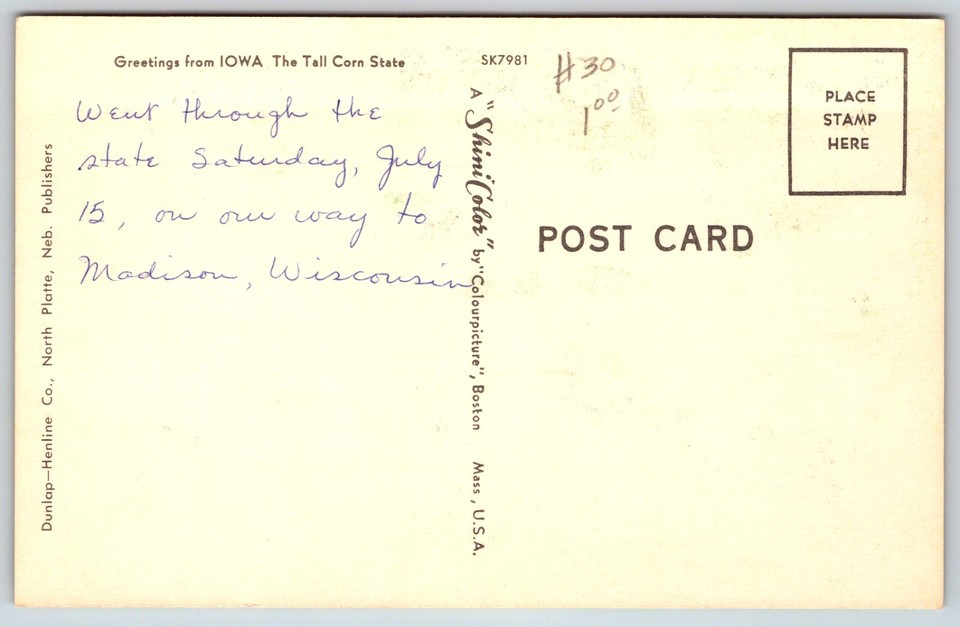 Greetings from IOWA The Tall Corn State
SK7981
#30
1⁰⁰
PLACE
STAMP
HERE
Went through the
state Saturday, July
15, on our way to
Madison, Wisconsin
POST CARD
Dunlap—Henline Co., North Platte, Neb. Publishers
A "ShiniColor" by "Colourpicture", Boston Mass, U.S.A.